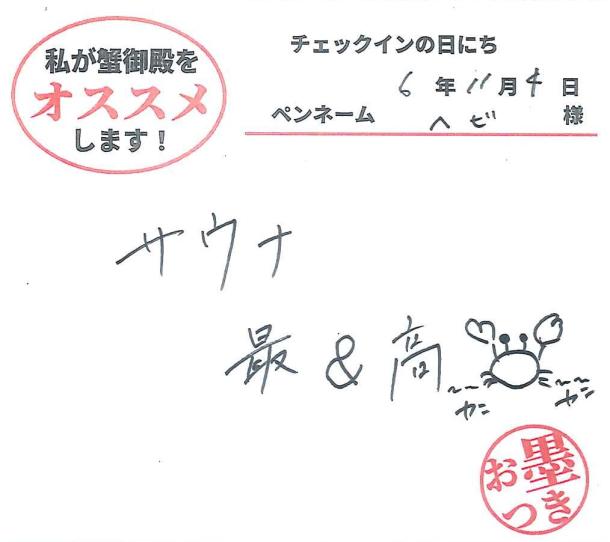 私が蟹御殿を
オススメ
します！
チェックインの日にち
6年11月4日
ペンネーム ヘビ 様
サウナ
最&高
カニ カニ
お墨
つき